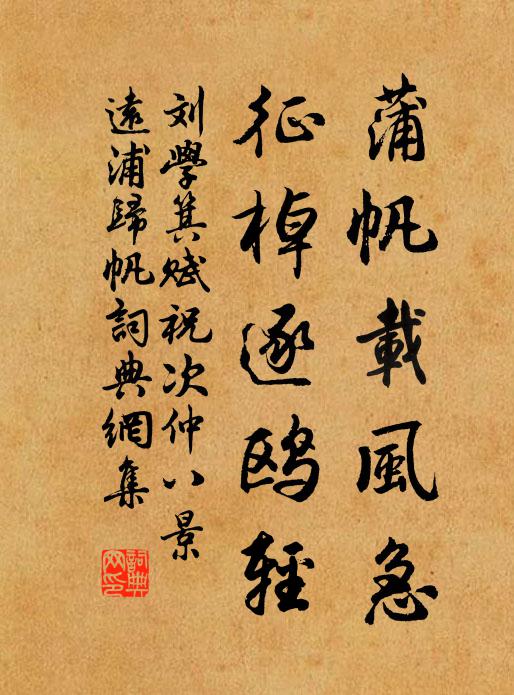 蒲帆載風急
征棹逐鸥輕
刘學箕賦祝次仲八景
遠浦歸帆詞典網集
詞典网印